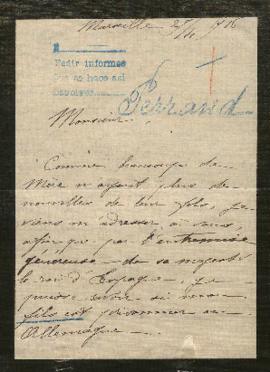 Marseille 2/4 1916
Pedir informes
Ferrand
Monsieur
Comme beaucoup de
Mère n'ayant plus de
nouvelles de leur fils, je
viens m'adresser à vous
afin que par l'entremise
généreuse de sa majesté
le roi d'Espagne, je
puisse savoir si mon
fils est prisonnier en
Allemagne